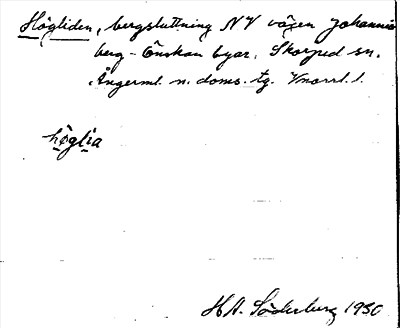 Högliden, bergsluttning NV vägen Johannis
berg - Önskan byar, Skorped sn.
Ångerml. n. doms. tg. Vnorrl. l.
höglia
H.A. Söderberg 1930